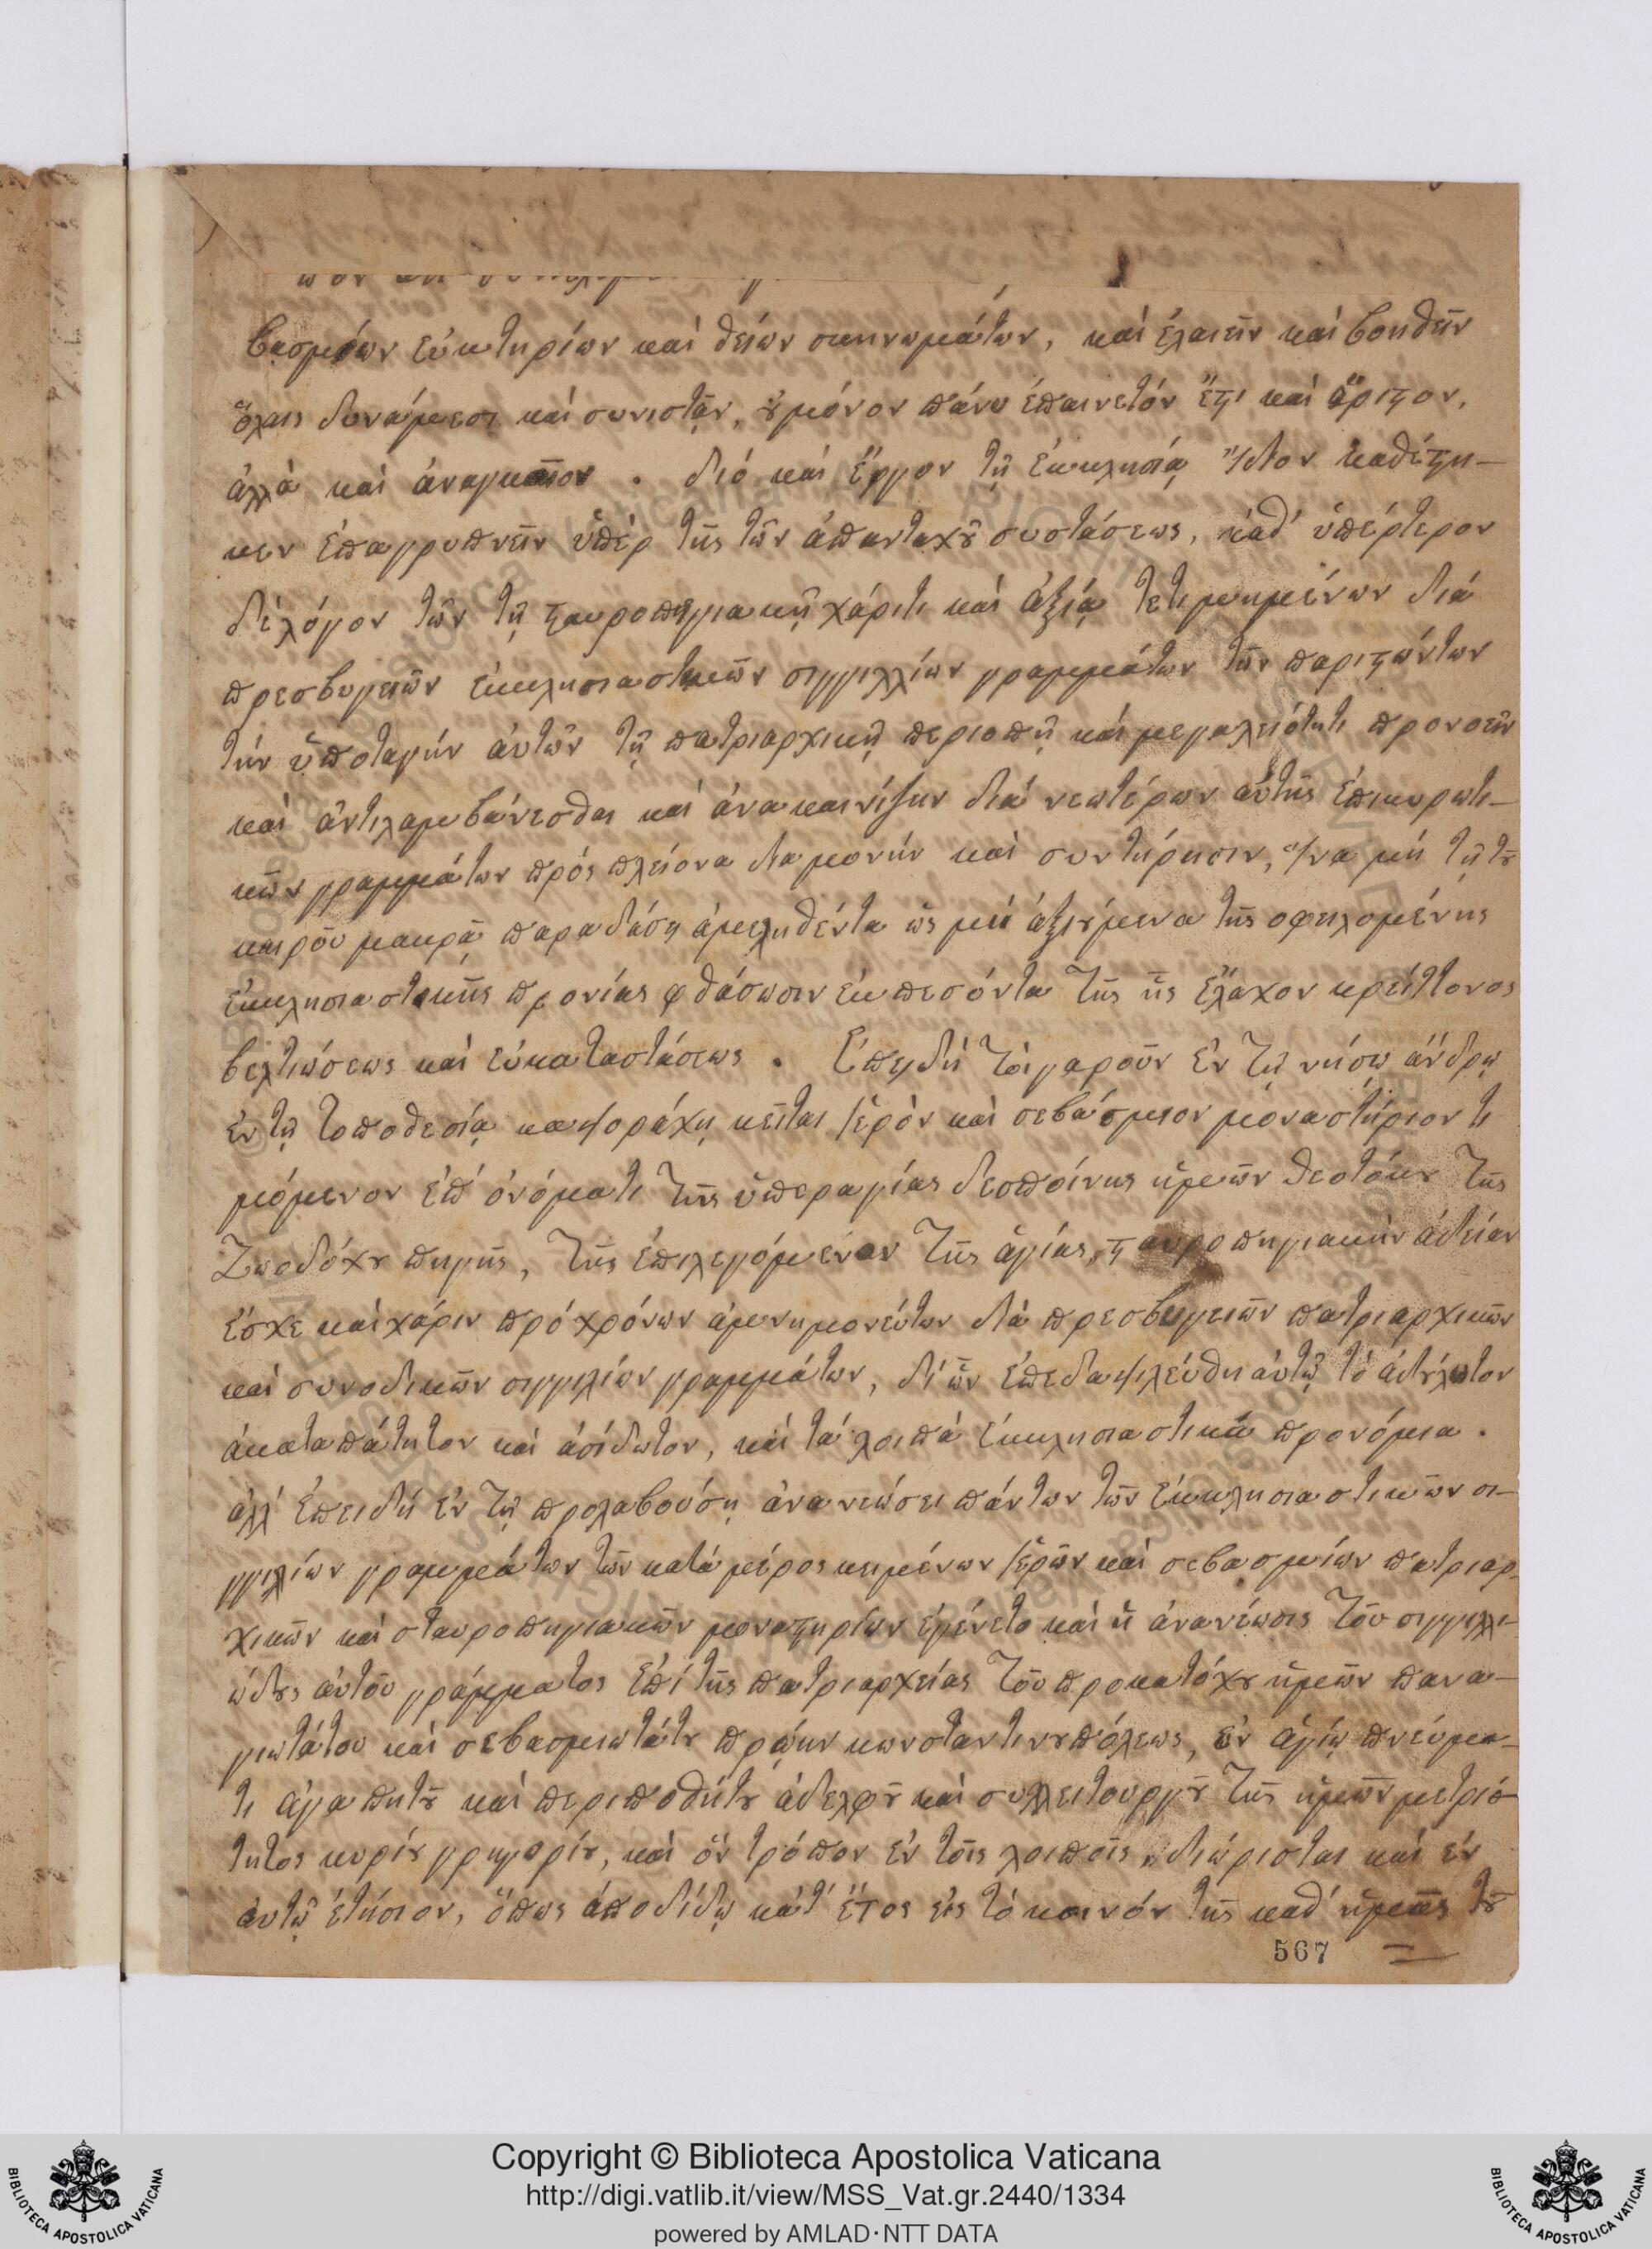 βασμίων εὐκτηρίων καὶ θείων σκηνωμάτων, καὶ ἐλαιεῖν καὶ βοηθεῖν
ὅλαις δυνάμεσι καὶ συνιστᾶν, οὐ μόνον πάνυ ἐπαινετόν ἔστι καὶ ἄριστον,
ἀλλὰ καὶ ἀναγκαῖον . διό καὶ ἔργον τῇ ἐκκλησίᾳ ἴδιον καθέστη-
κεν ἐπαγρυπνεῖν ὑπὲρ τῆς τῶν ἁπανταχοῦ συστάσεως, καθ' ὑπέρτερον
δὲ λόγον τῶν τῇ σταυροπηγιακῇ χάριτι καὶ ἀξίᾳ τετιμημένων διὰ
πρεσβυγενῶν ἐκκλησιαστικῶν σιγγιλλίων γραμμάτων τῶν παριστώντων
τὴν ὑποταγήν αὐτῶν τῇ πατριαρχικῇ περιοπῇ καὶ μεγαλειότητι προνοεῖν
καὶ ἀντιλαμβάνεσθαι καὶ ἀνακαινίζειν διὰ νεωτέρων αὐτῆς ἐπικυρωτι-
κῶν γραμμάτων πρὸς πλείονα διαμονήν καὶ συντήρησιν, ἵνα μή τῇ τοῦ
καιροῦ μακρᾷ παραδάσῃ ἀμεληθέντα ὡς μή ἀξιούμενα τῆς ὀφειλομένης
ἐκκλησιαστικῆς προνίας φθάσωσιν ἐκπεσόντα τῆς ἧς ἔλαχον κρείττονος
βελτιώσεως καὶ εὐκαταστάσεως . Ἐπειδή τοιγαροῦν ἐν τῇ νήσῳ ἄνδρῳ
ἐν τῇ τοποθεσίᾳ καψοράχῃ κεῖται ἱερὸν καὶ σεβάσμιον μοναστήριον τι
μώμενον ἐπ' ὀνόματι τῆς ὑπεραγίας δεσποίνης ἡμῶν θεοτόκου τῆς
Ζωοδόχου πηγῆς, τῆς ἐπιλεγόμενον τῆς ἁγίας, σταυροπηγιακήν ἀδείαν
ἔσχε καὶ χάριν πρὸ χρόνων ἀμνημονεύτων διὰ πρεσβυγενῶν πατριαρχικῶν
καὶ συνοδικῶν σιγγιλίων γραμμάτων, δι' ὧν ἐπεδαψιλεύθη αὐτῷ τὸ ἀδούλωτον
ἀκαταπάτητον καὶ ἀσύδωτον, καὶ τὰ λοιπὰ ἐκκλησιαστικὰ προνόμια .
ἀλλ' ἐπειδή ἐν τῇ προλαβούσῃ ἀνανεώσει πάντων τῶν ἐκκλησιαστικῶν σι-
γγιλίων γραμμάτων τῶν κατὰ μέρος κειμένων ἱερῶν καὶ σεβασμίων πατριαρ-
χικῶν καὶ σταυροπηγιακῶν μοναστηρίων ἐγένετο καὶ ἡ ἀνανέωσις τοῦ σιγγιλλι-
ώδους αὐτοῦ γράμματος ἐπὶ τῆς πατριαρχείας τοῦ προκατόχου ἡμῶν πανα-
γιωτάτου καὶ σεβασμιωτάτου πρώην κωνσταντινουπόλεως, ἐν ἁγίῳ πνεύμα-
τι ἀγαπητοῦ καὶ περιποθήτου ἀδελφοῦ καὶ συλλειτουργοῦ τῆς ἡμῶν μετριό-
τητος κυρίου γρηγορίου, καὶ ὅν τρόπον ἐν τοῖς λοιποῖς, διώρισται καὶ ἐν
αὐτῷ ἐτήσιον, ὅπως ἀποδίδῳ κατ' ἔτος εἰς τὸ κοινόν τῆς καθ' ἡμᾶς τοῦ
567
Copyright © Biblioteca Apostolica Vaticana
http://digi.vatlib.it/view/MSS_Vat.gr.2440/1334
powered by AMLAD·NTT DATA
BIBLIOTECA APOSTOLICA VATICANA
BIBLIOTECA APOSTOLICA VATICANA